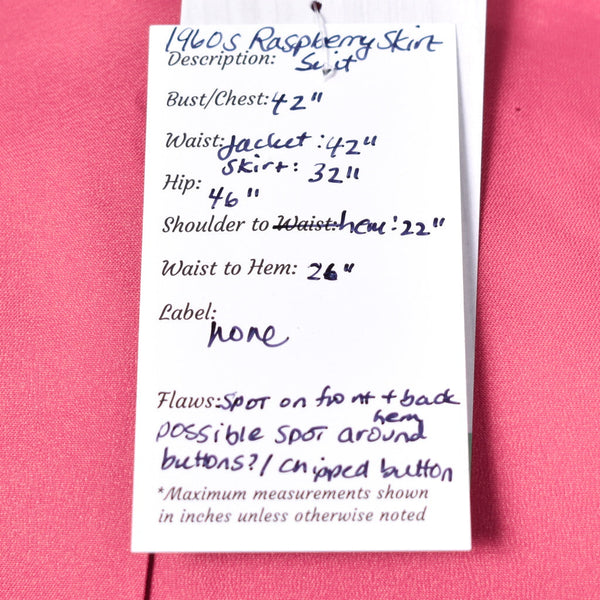 1960s Raspberry Skirt
Description: Suit
Bust/Chest: 42"
Waist: Jacket: 42"
Skirt: 32"
Hip: 46"
Shoulder to Waist: hem: 22"
Waist to Hem: 26"
Label: none
Flaws: Spot on front + back
hem
possible spot around
buttons?/ chipped button
*Maximum measurements shown
in inches unless otherwise noted